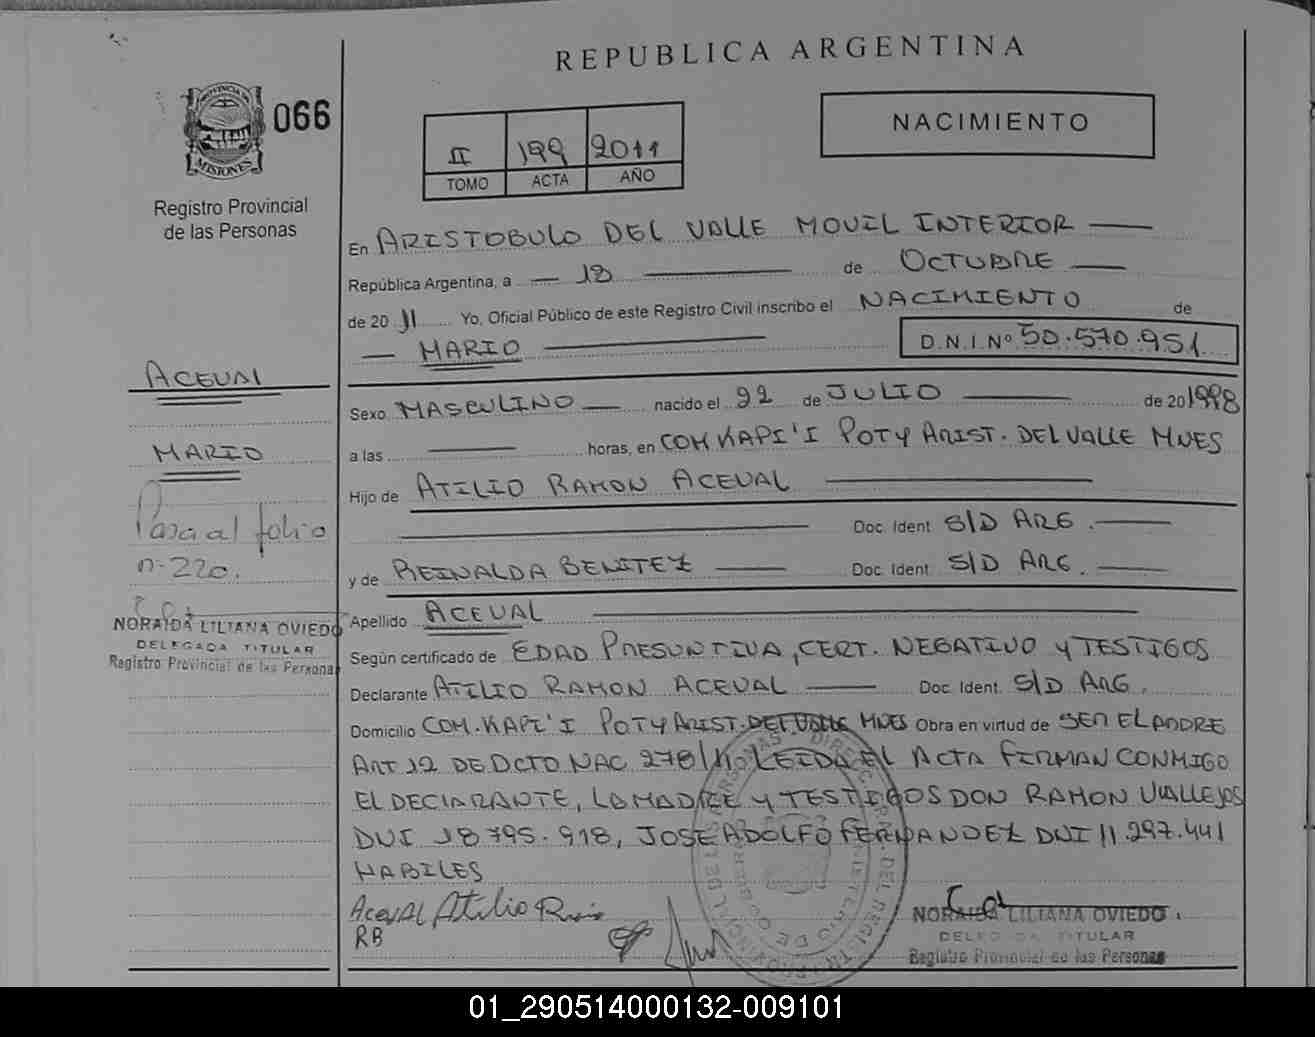 REPUBLICA ARGENTINA
PROVINCIA DE
MISIONES
066
Registro Provincial
de las Personas
II 199 2011
TOMO ACTA AÑO
NACIMIENTO
En ARISTOBULO DEL VALLE MOVIL INTERIOR
República Argentina, a 18 de OCTUBRE
de 20 11 Yo, Oficial Público de este Registro Civil inscribo el NACIMIENTO de
MARIO D.N.I. Nº 50.570.951
ACEVAL
Sexo MASCULINO nacido el 22 de JULIO de 20 1998
MARIO
a las horas, en COM KAPI'I POTY ARIST. DEL VALLE MNES
Hijo de ATILIO RAMON ACEVAL
Pasa al folio
Doc. Ident. S/D ARG.
n-220.
y de REINALDA BENITEZ Doc. Ident. S/D ARG.
Apellido ACEVAL
NORAIDA LILIANA OVIEDO
DELEGADA TITULAR
Registro Provincial de las Personas
Según certificado de EDAD PRESUNTIVA, CERT. NEGATIVO Y TESTIGOS
Declarante ATILIO RAMON ACEVAL Doc. Ident. S/D ARG.
Domicilio COM. KAPI'I POTY ARIST. DEL VALLE MNES Obra en virtud de SER EL PADRE
ART 12 DE DCTO NAC 278/11. LEIDA EL ACTA FIRMAN CONMIGO
EL DECLARANTE, LA MADRE Y TESTIGOS DON RAMON VALLEJOS
DNI 18 795.918, JOSE ADOLFO FERNANDEZ DNI 11.297.441
HABILES
Aceval Atilio
RB
NORAIDA LILIANA OVIEDO
DELEGADA TITULAR
Registro Provincial de las Personas
01_290514000132-009101